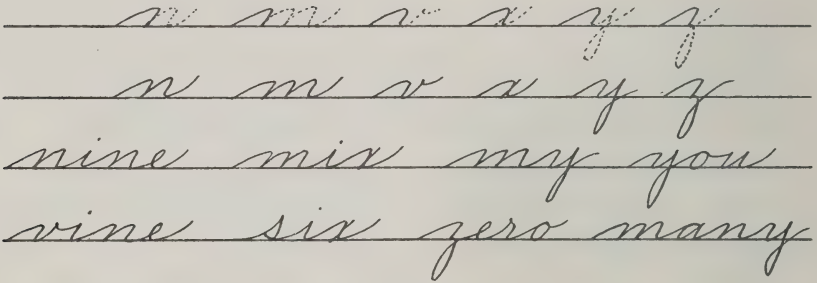 n m v x y z
n m v x y z
nine mix my you
vine six zero many